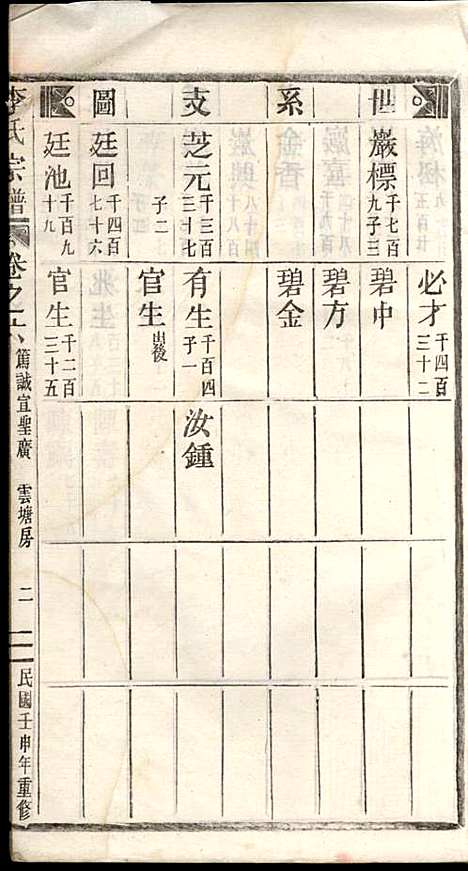 世系支圖
必才 千四百三十二
巖標 千七百九 子三
碧中
碧方
碧金
芝元 千三百三十七
有生 千百四 子一
汝鍾
子二
官生 出後
廷回 千四百七十六
廷池 千百九十九
官生 千二百三十五
李氏宗譜
卷之六
篤誠宜聖廣 雲塘房 二
民國壬申年重修